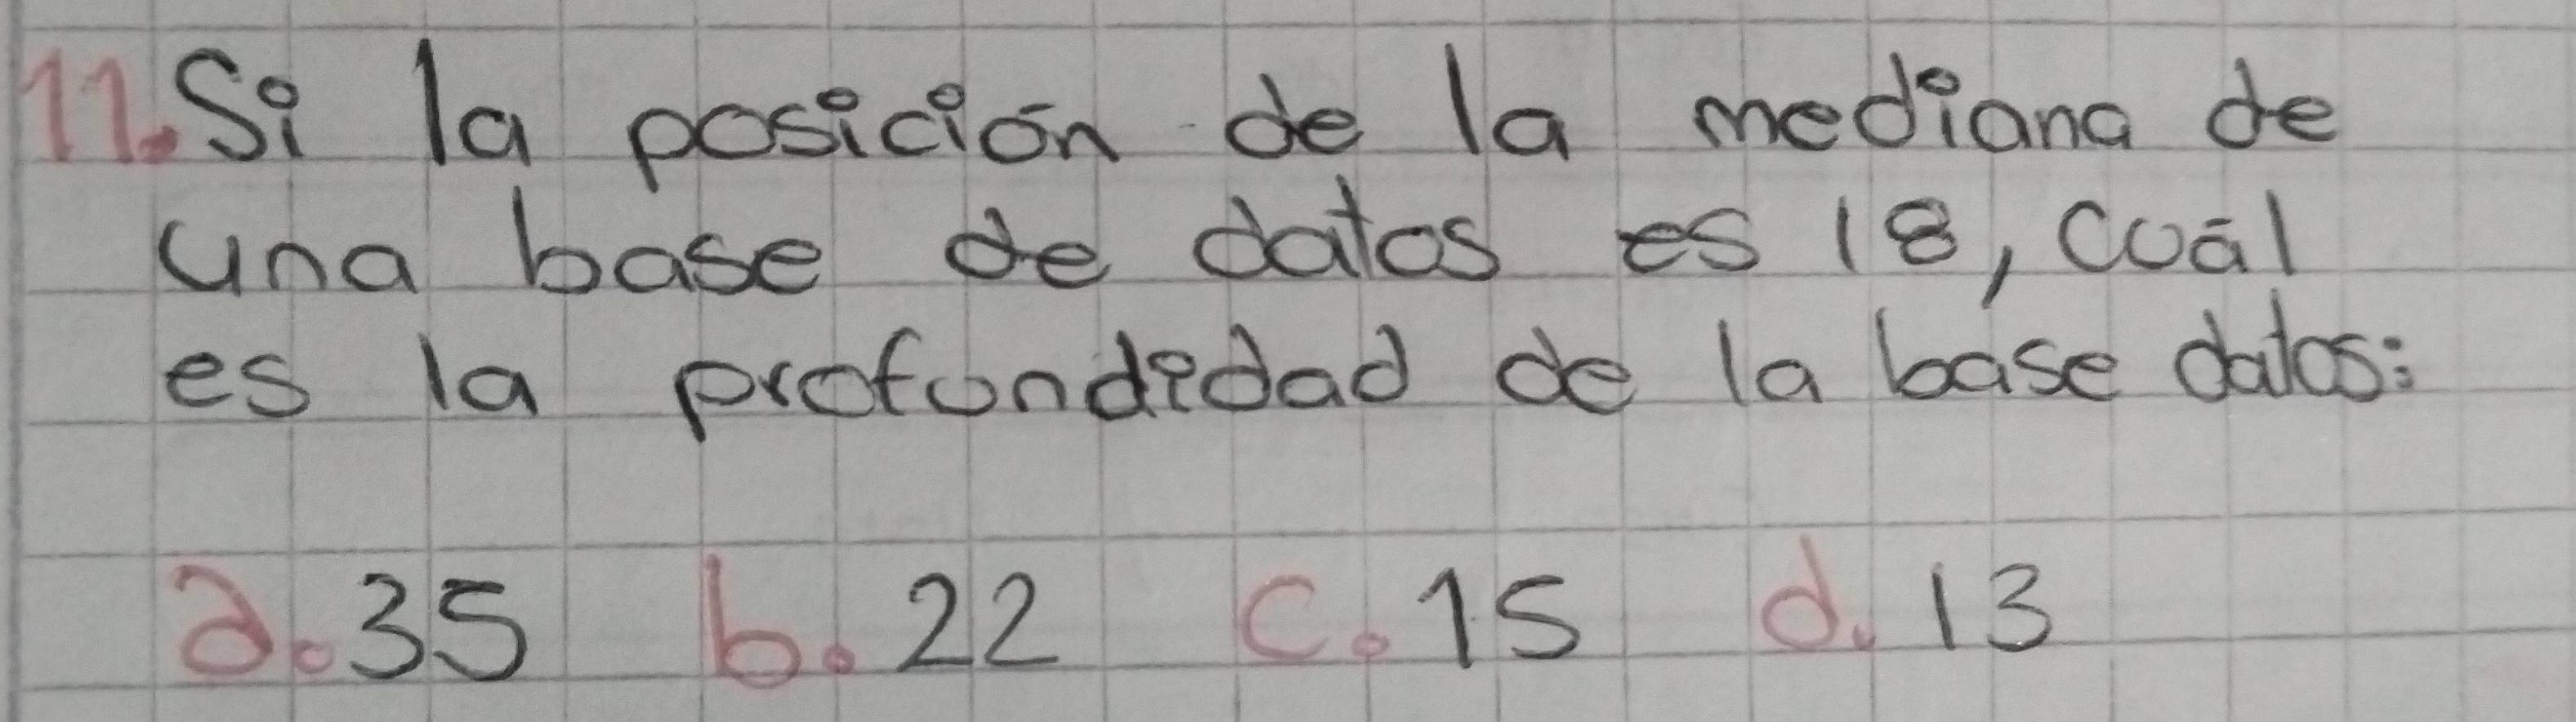 11. Si la posición de la mediana de
una base de datos es 18, cuál
es la profundidad de la base datos:
a. 35 b. 22 c. 15 d. 13